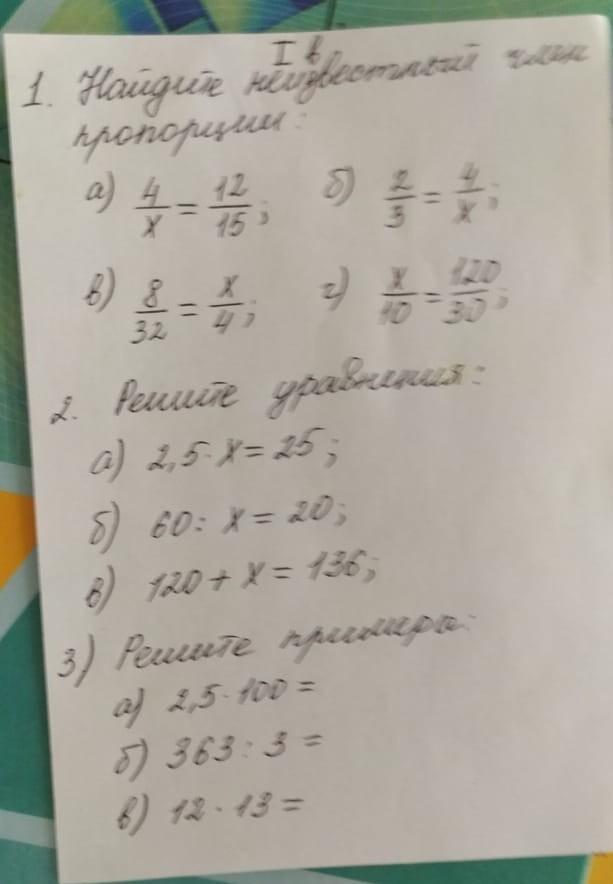 I в
1. Найдите неизвестный член
пропорции:
а) 4/x = 12/15; б) 2/3 = 4/x;
в) 8/32 = x/4; г) x/10 = 120/30;
2. Решите уравнения:
а) 2,5 · x = 25;
б) 60 : x = 20;
в) 120 + x = 136;
3) Решите примеры:
а) 2,5 · 100 =
б) 363 : 3 =
в) 12 · 13 =